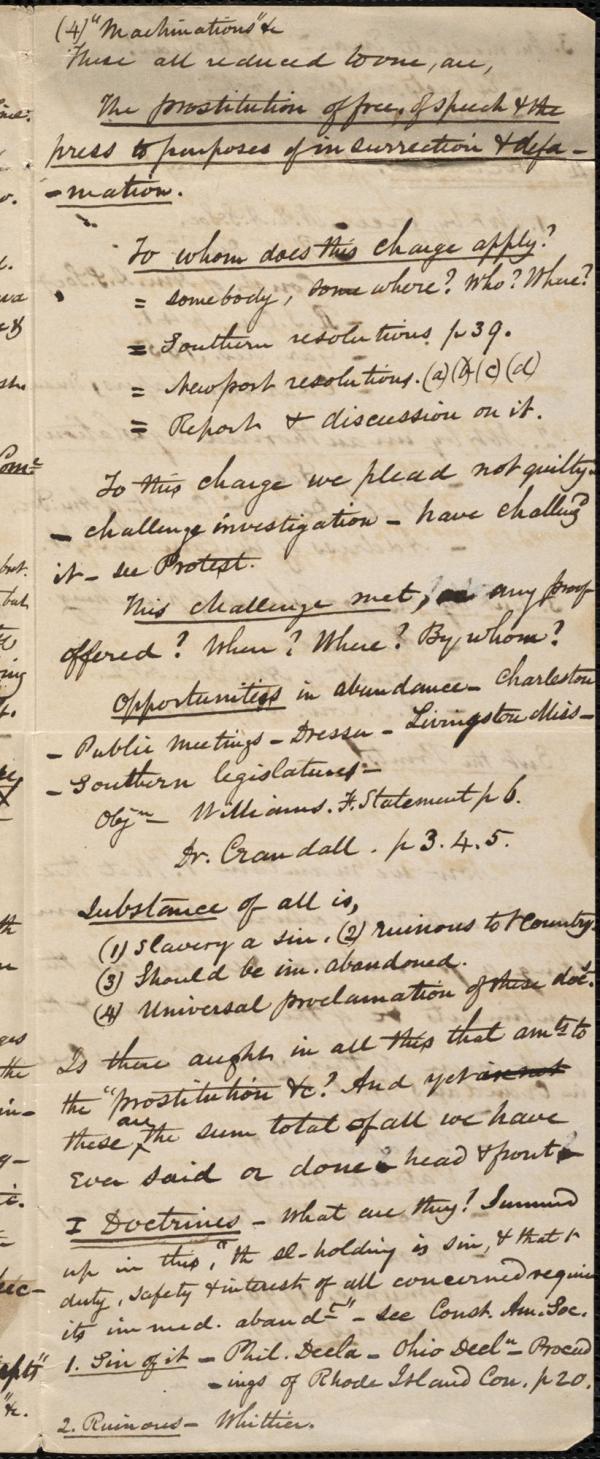 (4) "Machinations" &c
These all reduced to one, are,
The prostitution of free, of speech & the
press to purposes of insurrection & defa-
-mation.
To whom does this charge apply?
= somebody, some where? Who? Where?
= Southern resolutions p 39.
= Newport resolutions. (a) (b) (c) (d)
= Report & discussion on it.
To this charge we plead not guilty-
- challenge investigation - have challegd
it - see Protest.
This challenge met, any proof
offered? When? Where? By whom?
Opportunities in abundance - Charleston
- Public Meetings - Dresser - Livingston Miss-
- Southern legislatures -
Objn - Williams. F. Statement p 6.
Dr. Crandall. p 3. 4. 5.
Substance of all is,
(1) Slavery a sin. (2) ruinous to t Country.
(3) Should be im. abandoned.
(4) Universal proclamation of these doc.s
Is there aught in all this that amts to
the "prostitution &c? And yet
these are the sum total of all we have
Ever said or done head & front
I Doctrines - What are they? Summd
up in this, "th sl-holding is sin, & that t
duty, safety & interest of all concerned require
its immed. abandt" - see Const. Am. Soc.
1. Sin of it - Phil. Decla - Ohio Decln - Proceed
-ings of Rhode Island Con. p 20.
2. Ruinous - Whittier.